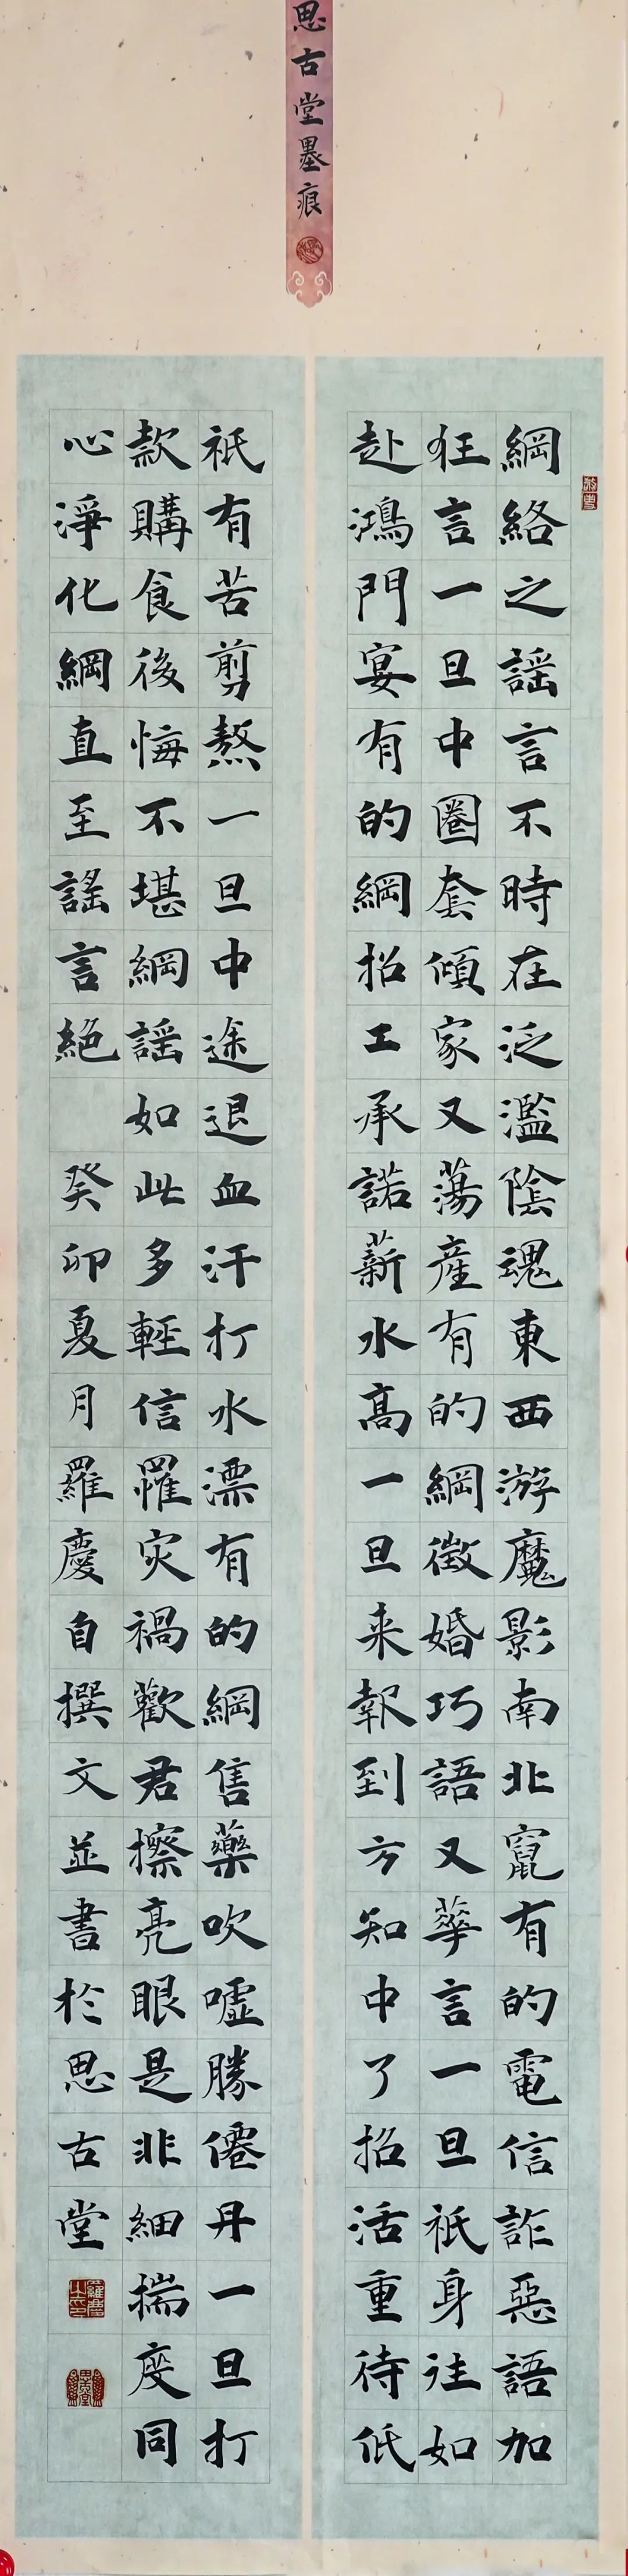 思古堂墨痕
綱絡之謡言不時在泛濫陰魂東西游魔影南北竄有的電信詐惡語加
狂言一旦中圈套傾家又蕩産有的綱徵婚巧語又華言一旦祇身往如
赴鴻門宴有的綱招工承諾薪水高一旦来報到方知中了招活重待低
祇有苦剪熬一旦中途退血汗打水漂有的綱售藥吹噓勝僊丹一旦打
款購食後悔不堪綱謡如此多輕信罹灾禍歡君擦亮眼是非細揣度同
心淨化綱直至謡言絕 癸卯夏月羅慶自撰文並書於思古堂
羅慶之印